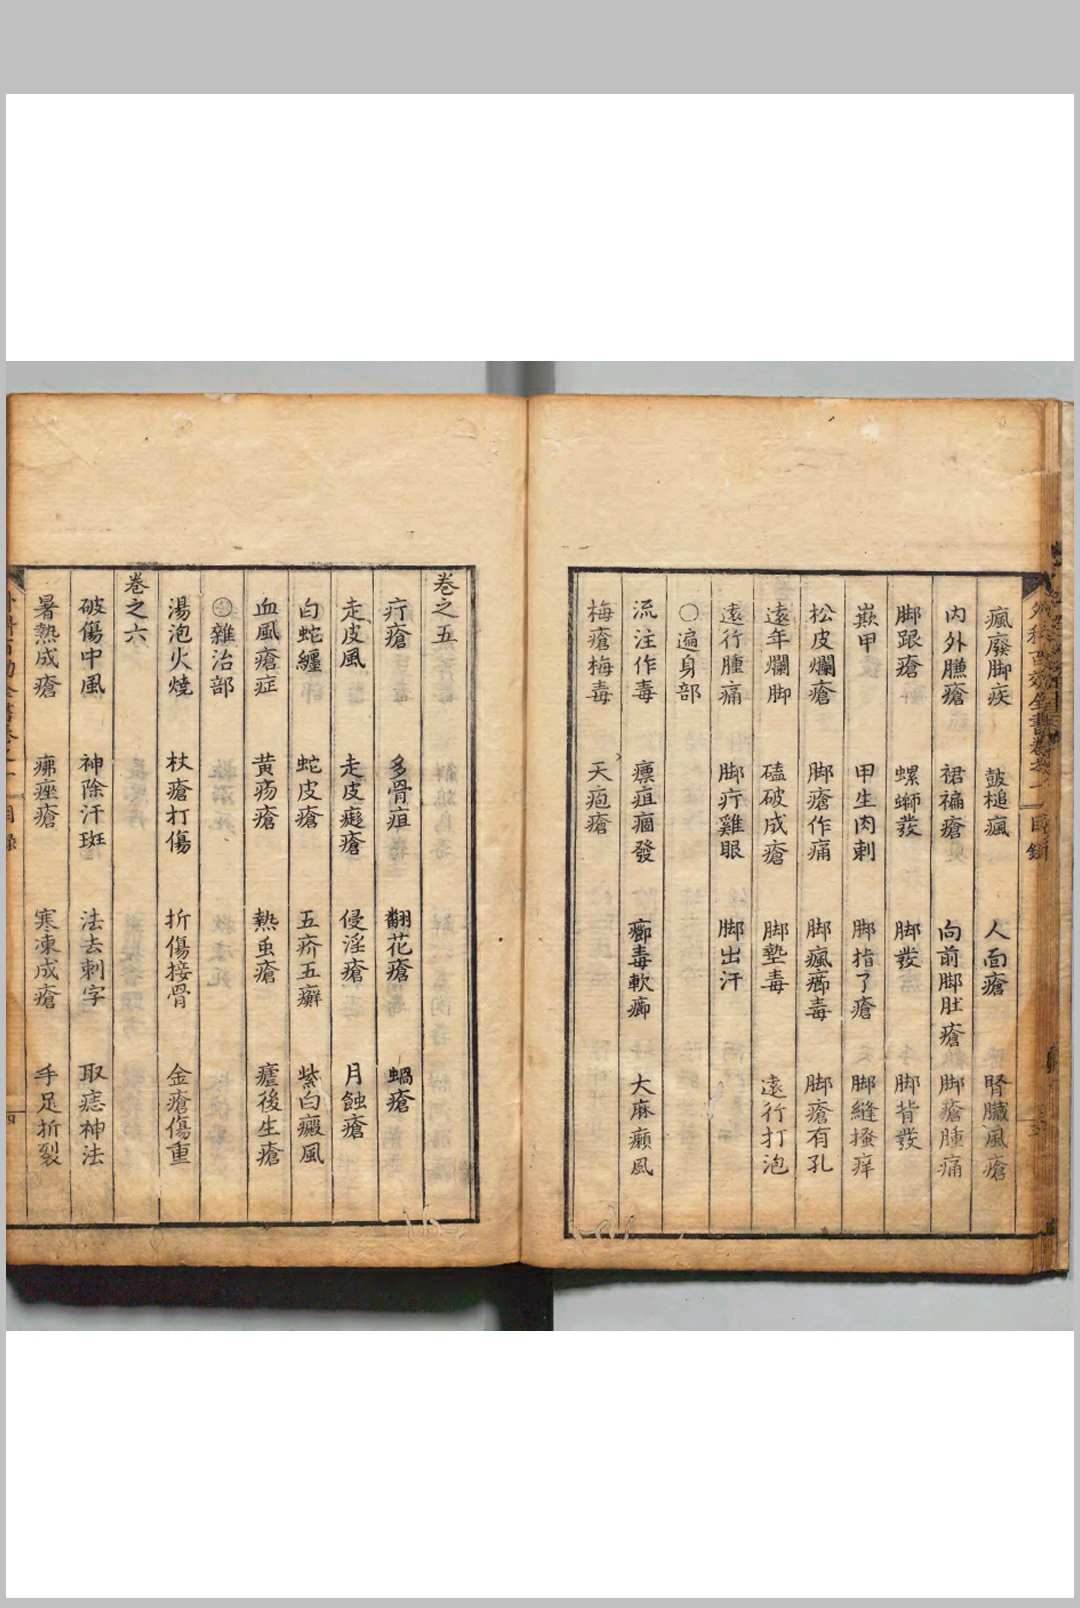 瘋廢脚疾 鼓槌瘋 人面瘡 腎臟風瘡
內外臁瘡 裙褊瘡 向前脚肚瘡 脚瘡腫痛
脚跟瘡 螺螄發 脚發 脚背發
嵌甲 甲生肉刺 脚指了瘡 脚縫搔痒
松皮爛瘡 脚瘡作痛 脚瘋癤毒 脚瘡有孔
遠年爛脚 磕破成瘡 脚墊毒 遠行打泡
遠行腫痛 脚疔雞眼 脚出汗
〇遍身部
流注作毒 瘭疽痼發 癤毒軟癤 大麻癩風
梅瘡梅毒 天疱瘡
卷之五
疔瘡 多骨疽 翻花瘡 蝸瘡
走皮風 走皮㿔瘡 侵淫瘡 月蝕瘡
白蛇纏 蛇皮瘡 五疥五癬 紫白癜風
血風瘡症 黃瘍瘡 熱虫瘡 瘧後生瘡
雜治部
湯泡火燒 杖瘡打傷 折傷接骨 金瘡傷重
卷之六
破傷中風 神除汗斑 法去刺字 取痣神法
暑熱成瘡 疿痤瘡 寒凍成瘡 手足折裂